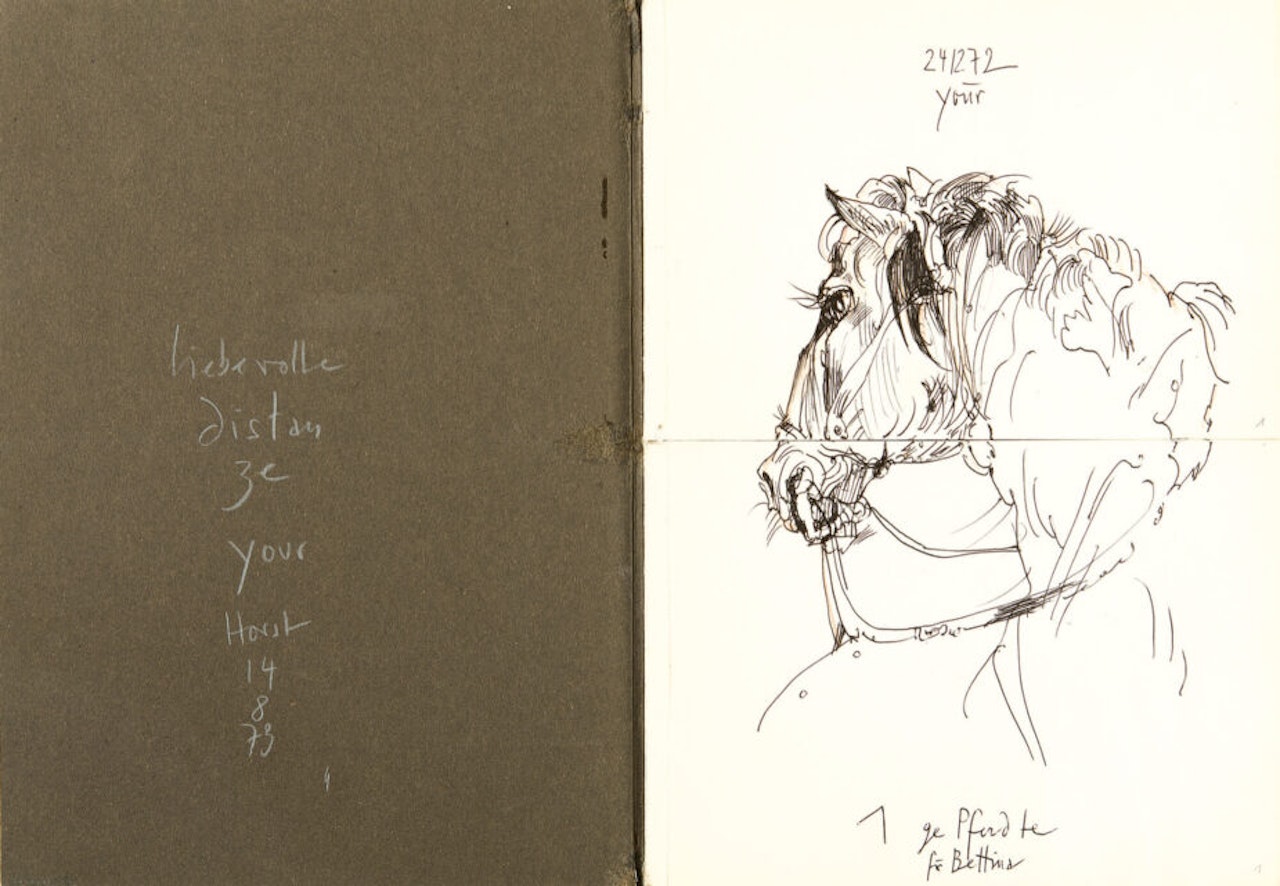 liebevolle
distan
ze
your
Horst
14
8
73
24 12 72
your
1 ge Pferd te
für Bettina